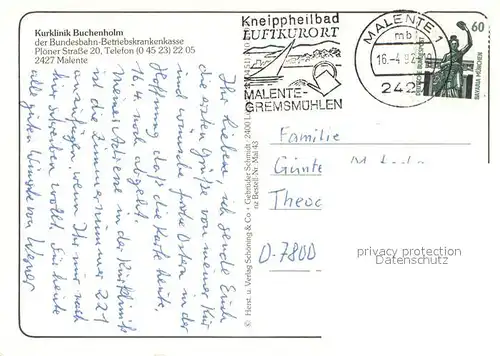 Kurklinik Buchenholm
der Bundesbahn-Betriebskrankenkasse
Plöner Straße 20, Telefon (0 45 23) 22 05
2427 Malente
Kneippheilbad
LUFTKURORT
MALENTE-
GREMSMÜHLEN
MALENTE 1
mb
16.-4.92
242
60
BAVARIA MÜNCHEN
Ihr Lieben, ich sende Euch
die ersten Grüße von meiner Kur
und wünsche frohe Ostern in der
Hoffnung, daß die Karte heute,
16.4. noch abgeht.
Meine Adresse in der Kurklinik
ist die Zimmernummer 221
anzufügen, wenn Ihr mir noch
schreiben wollt. Für heute
alle guten Wünsche von Werner
© Herst. u. Verlag Schöning & Co · Gebrüder Schmidt
Bestell-Nr. Mal 43
Familie
Günte
Theod
D-7800
privacy protection
Datenschutz